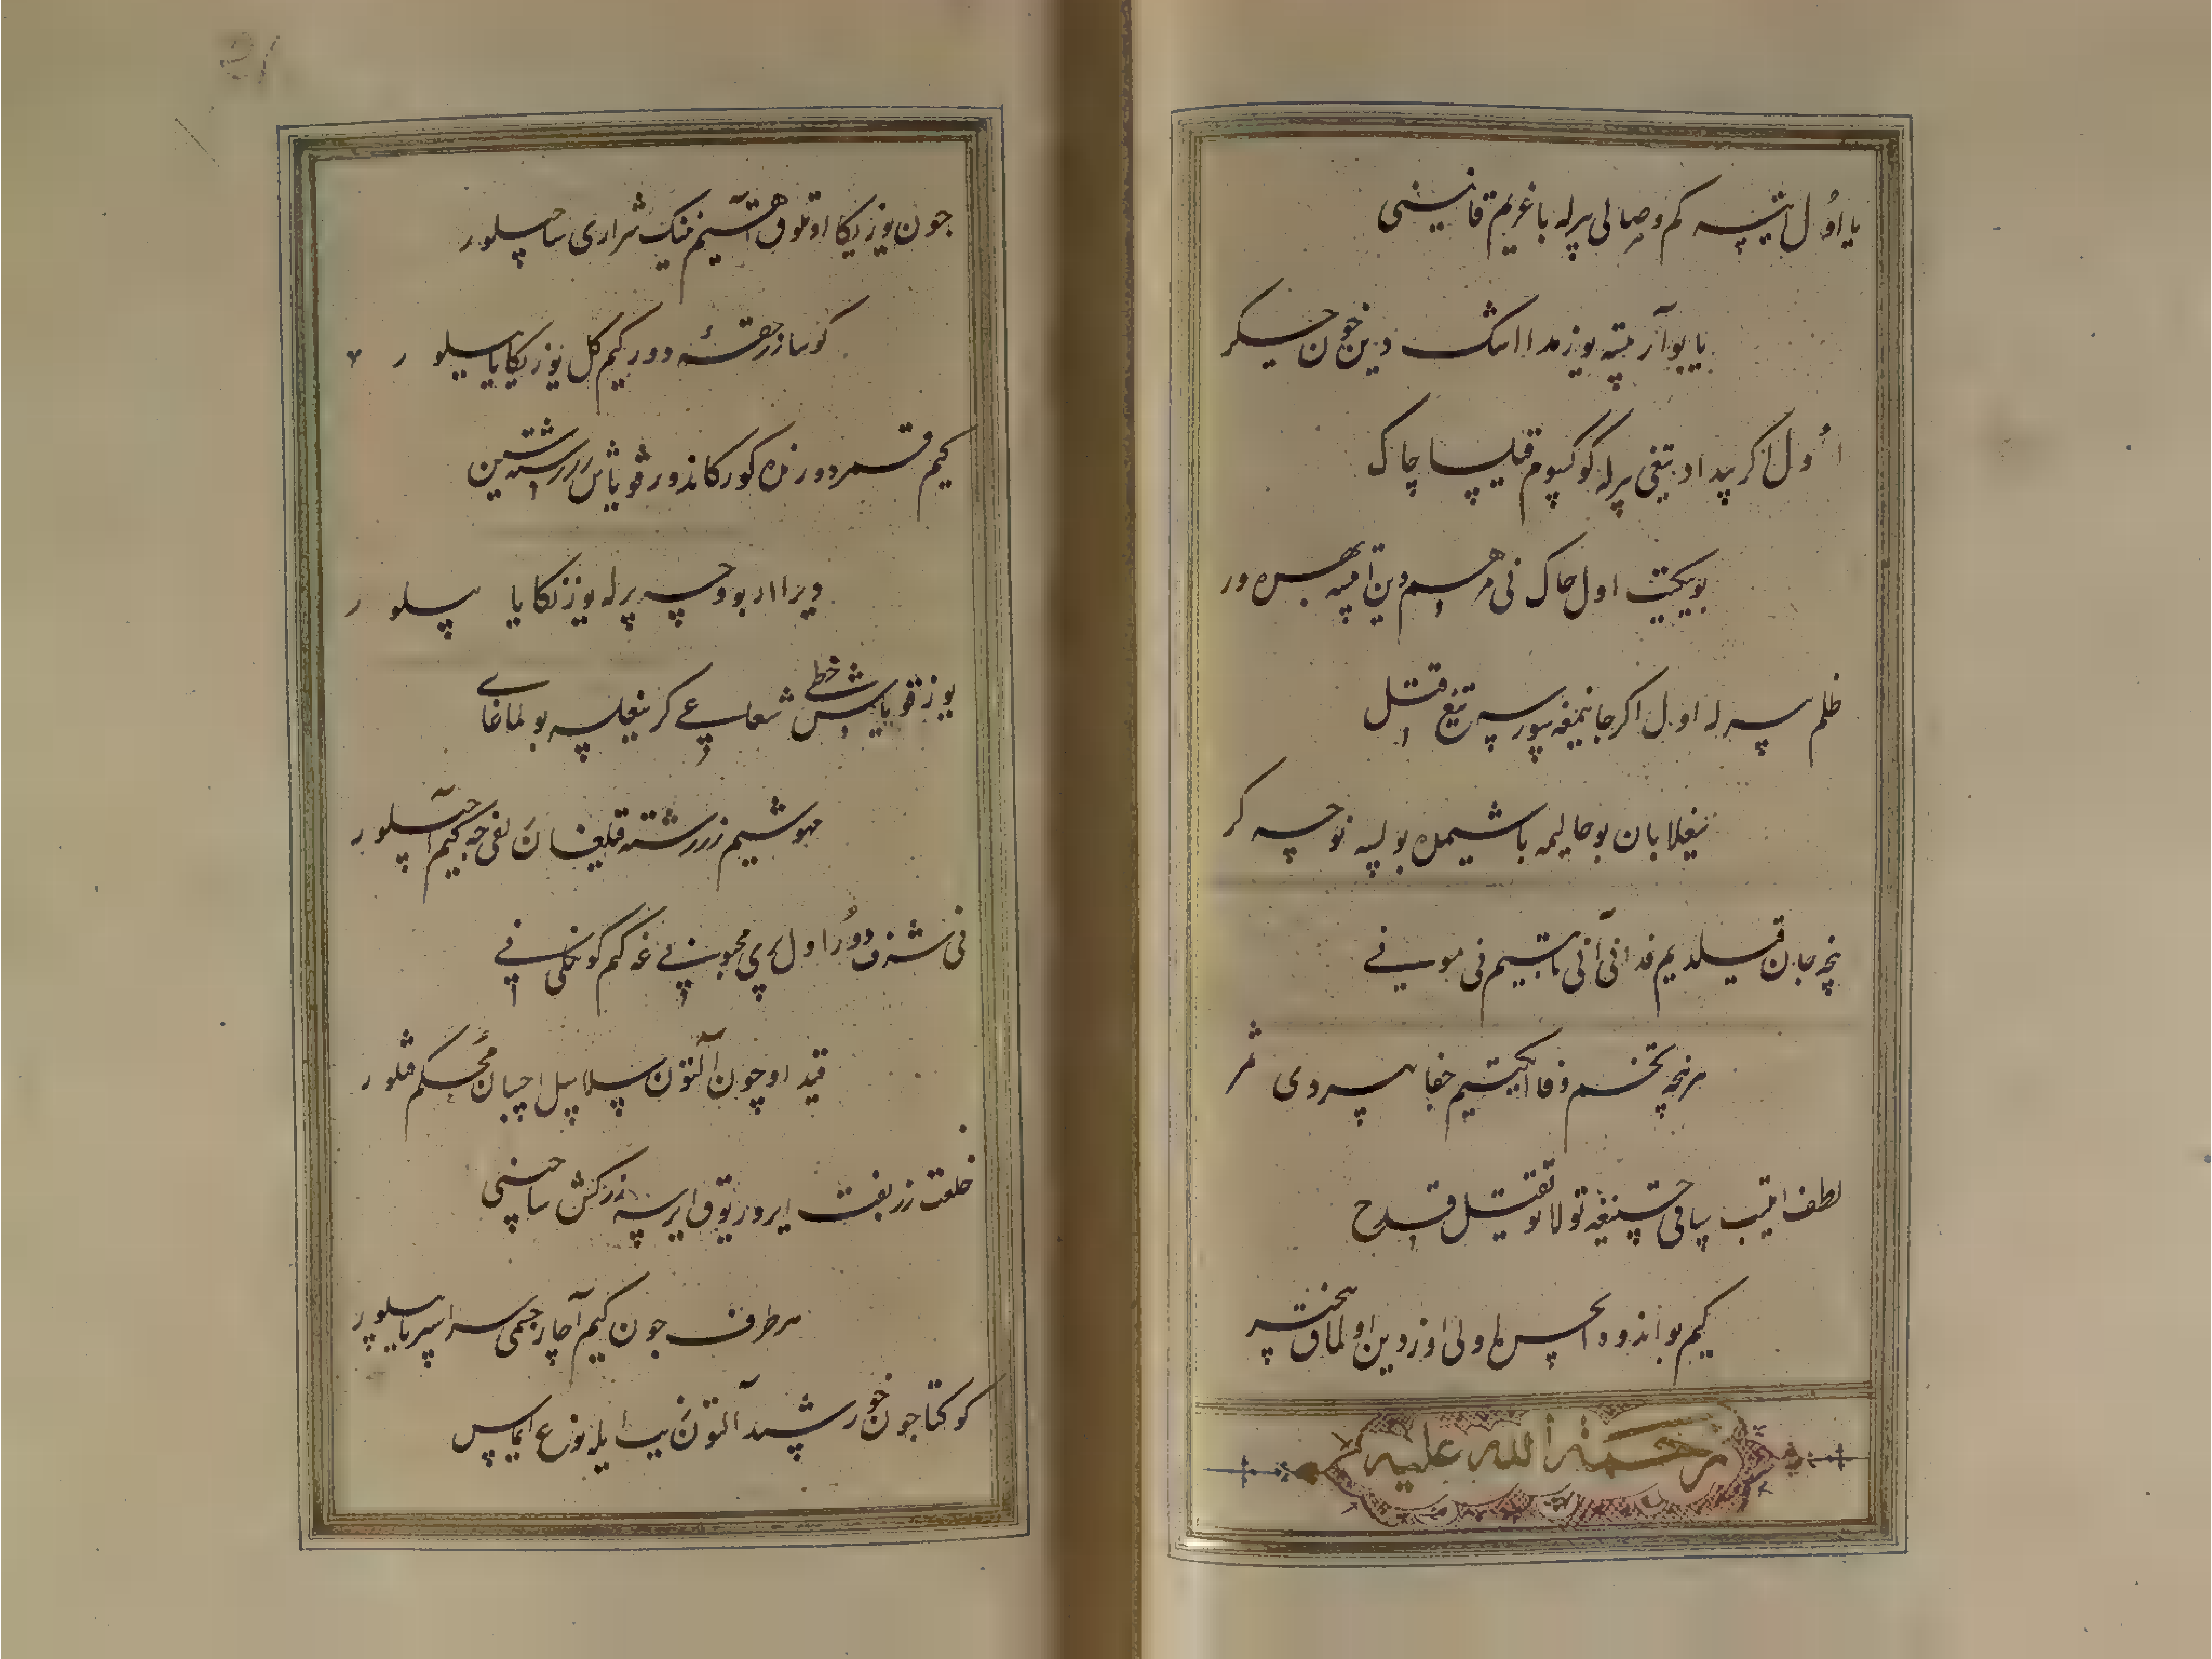 یا اول ایتسه کم وصالی برله باغریم قانینی
یا بو آریتسه یوزمدا اشک دین خون جیکر
اول اکر بیداد تیغی برله کوکسوم قیلسا چاک
بو ییکیت اول چاک نی مرهم دین ایتسه بهره ور
ظلم برله اول اکر جانیمغه سورسه تیغ قتل
ییغلابان بو حالیمه باشیمده بولسه نوحه کر
نچه جان قیلدیم فدا نی آنی تاپتیم نی مونی
هر نچه تخم وفا ایکتیم جفا بیردی ثمر
لطف ایتیب ساقی قاشیغه تولا توتقیل قدح
کیم بو اندوه ایچره اولی اوزدین اولماق بیخبر
رحمة الله علیه
چون یوزیکا اوتلوق آهیم نینک شراری ساچیلور
کوییا زر حقه دور کیم کل یوزیکا یاسیلور
کیم قمر دور نده کورکاندور قویاش زر رشته سین
دیرا ار بو وجه برله یوزنکا یاسیلور
یوز قویاش خط شعاعی کر ییغلسه بولماغای
مهوشیم زر رشته قیلغان یفی جه کیم آچیلور
نی شرف دور اول پری محبوبی غه کیم کونکلنی
قید اوچون آلتون سلاسیل اچبان محکم قیلور
خلعت زربفت ایرور یوق ایرسه زرکش ساچینی
هر طرف چون کیم آچار جسمی سراسر یاسیلور
کوکتا چون خورشید آلتون بیله نوع ایماس